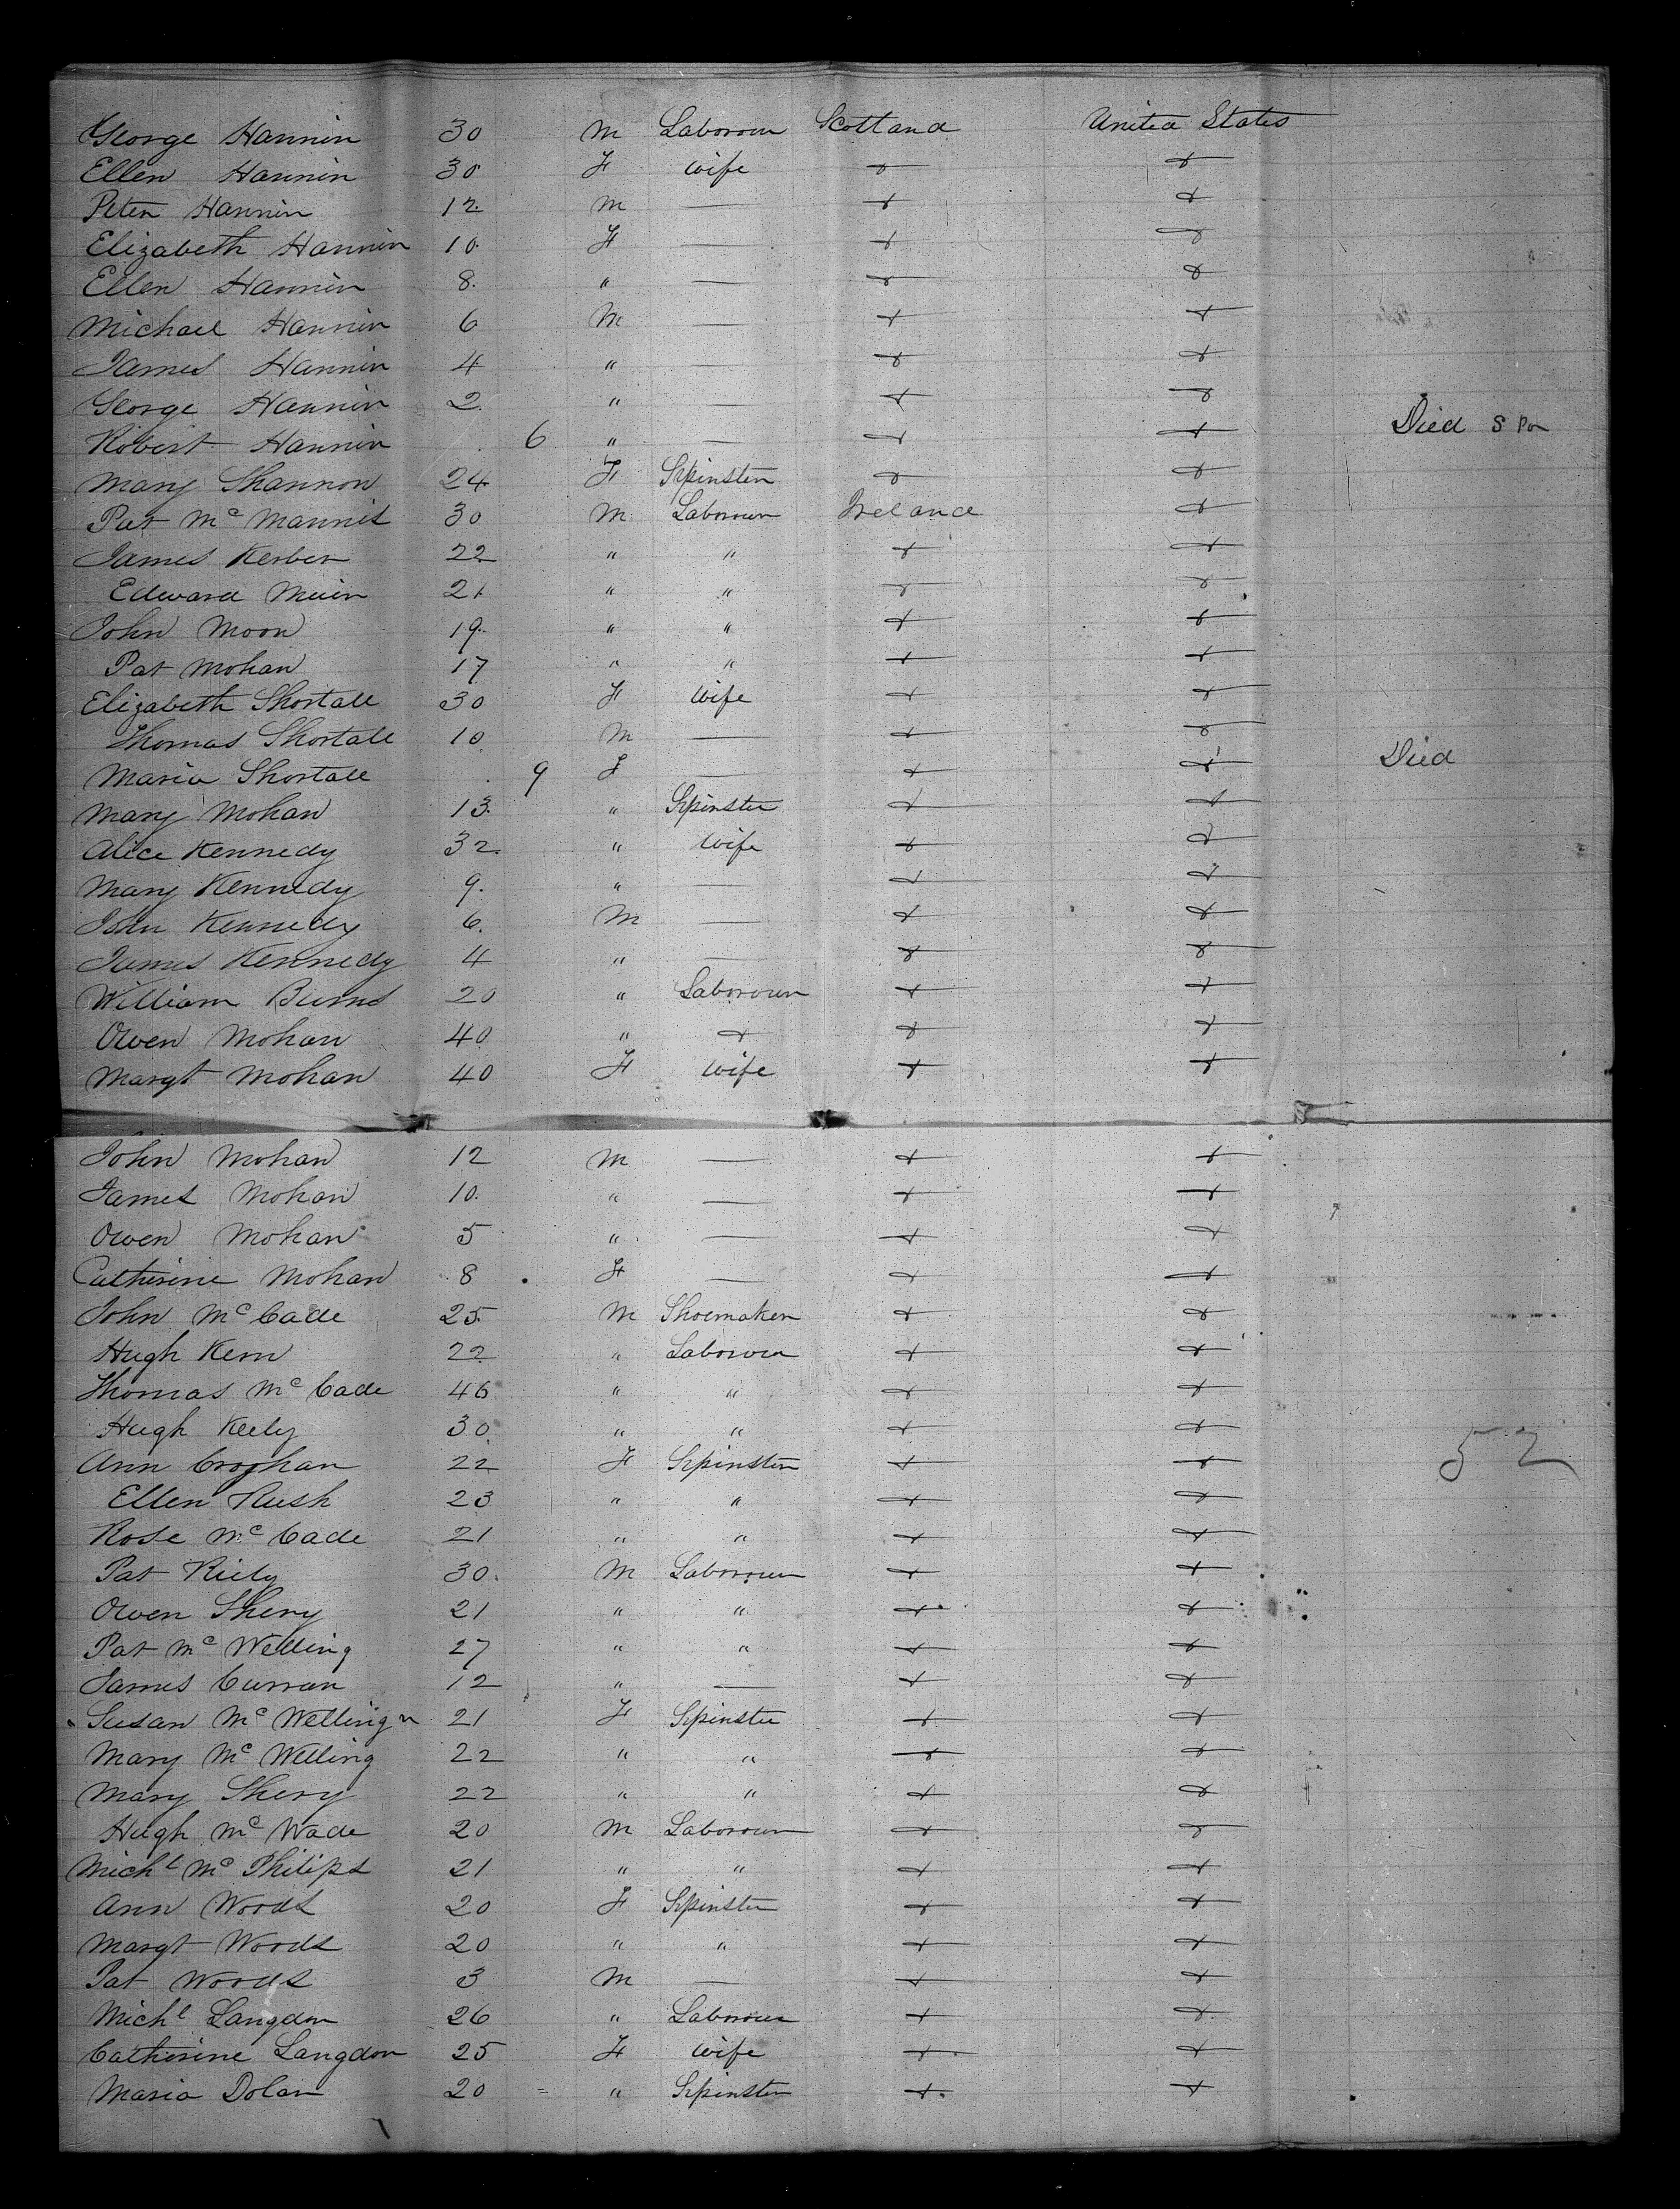 George Hannin 30 M Laborour Scotland United States
Ellen Hannin 30 F Wife + +
Peter Hannin 12 M — + +
Elizabeth Hannin 10 F — + +
Ellen Hannin 8 " — + +
Michael Hannin 6 M — + +
James Hannin 4 " — + +
George Hannin 2 " — + +
Robert Hannin 6 " — + + Died
Mary Shannon 24 F Spinster + +
Pat Mc Mannis 30 M Laborour Ireland +
James Kerber 22 " " + +
Edward Muir 21 " " + +
John Moon 19 " " + +
Pat Mohan 17 " " + +
Elizabeth Shortall 30 F Wife + +
Thomas Shortall 10 M — + +
Maria Shortall 9 F — + + Died
Mary Mohan 13 " Spinster + +
Alice Kennedy 32 " Wife + +
Mary Kennedy 9 " — + +
John Kennedy 6 M — + +
James Kennedy 4 " — + +
William Burns 20 " Laborour + +
Owen Mohan 40 " + + +
Margt Mohan 40 F Wife + +
John Mohan 12 M — + +
James Mohan 10 " — + +
Owen Mohan 5 " — + +
Catherine Mohan 8 F — + +
John Mc Cade 25 M Shoemaker + +
Hugh Kern 22 " Laborour + +
Thomas Mc Cade 46 " " + +
Hugh Keely 30 " " + +
Ann Croghan 22 F Spinster + + 52
Ellen Rush 23 " " + +
Rose Mc Cade 21 " " + +
Pat Riely 30 M Laborour + +
Owen Shery 21 " " + +
Pat Mc Welling 27 " " + +
James Curran 12 " — + +
Susan Mc Welling 21 F Spinster + +
Mary Mc Welling 22 " " + +
Mary Shery 22 " " + +
Hugh Mc Wade 20 M Laborour + +
Michl Mc Philips 21 " " + +
Ann Woods 20 F Spinster + +
Margt Woods 20 " " + +
Pat Woods 3 M — + +
Michl Langdon 26 " Laborour + +
Catherine Langdon 25 F Wife + +
Maria Dolan 20 " Spinster + +